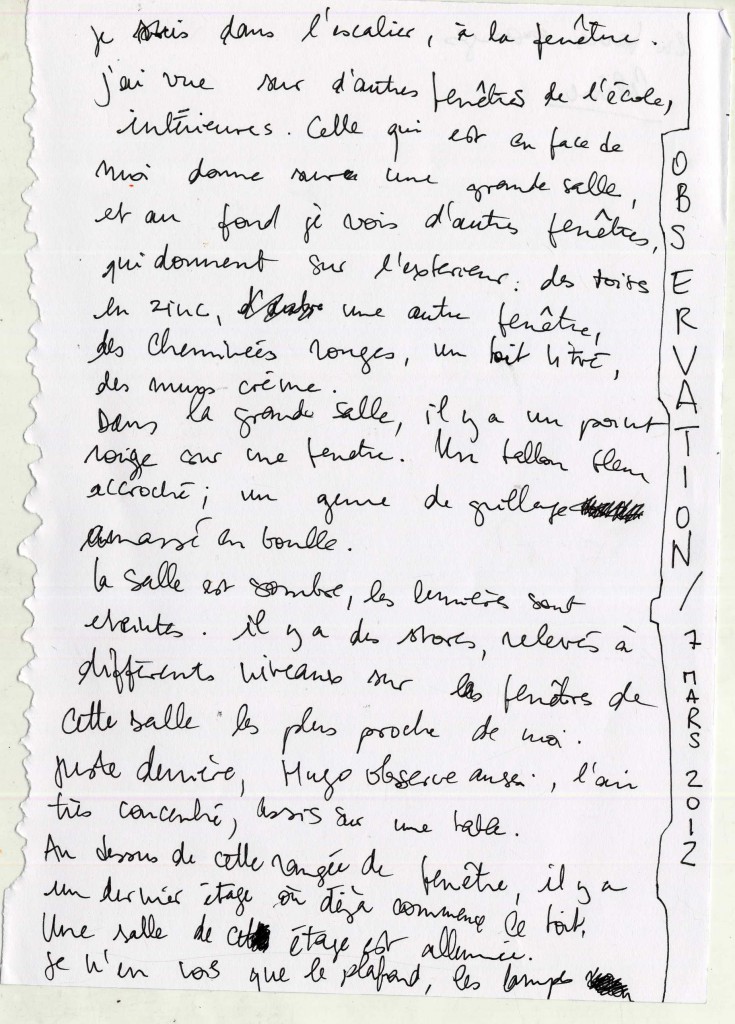 je suis dans l'escalier, à la fenêtre.
j'ai vue sur d'autres fenêtres de l'école,
intérieures. Celle qui est en face de
moi donne sur une grande salle,
et au fond je vois d'autres fenêtres,
qui donnent sur l'exterieur: des toits
en zinc, une autre fenêtre,
des cheminées rouges, un toit vitré,
des murs crème.
Dans la grande salle, il y a un point
rouge sur une fenêtre. Un ballon bleu
accroché; un genre de grillage
amassé en boulle.
la salle est sombre, les lumières sont
eteintes. il y a des stores, relevés à
différents niveaux sur les fenêtres de
cette salle les plus proche de moi.
juste derrière, Hugo observe aussi, l'air
très concentré, assis sur une table.
Au dessus de cette rangée de fenêtre, il y a
un dernier étage où déjà commence le toit.
Une salle de étage est allumée.
je n'en vois que le plafond, les lampes
OBSERVATION / 7 MARS 2012